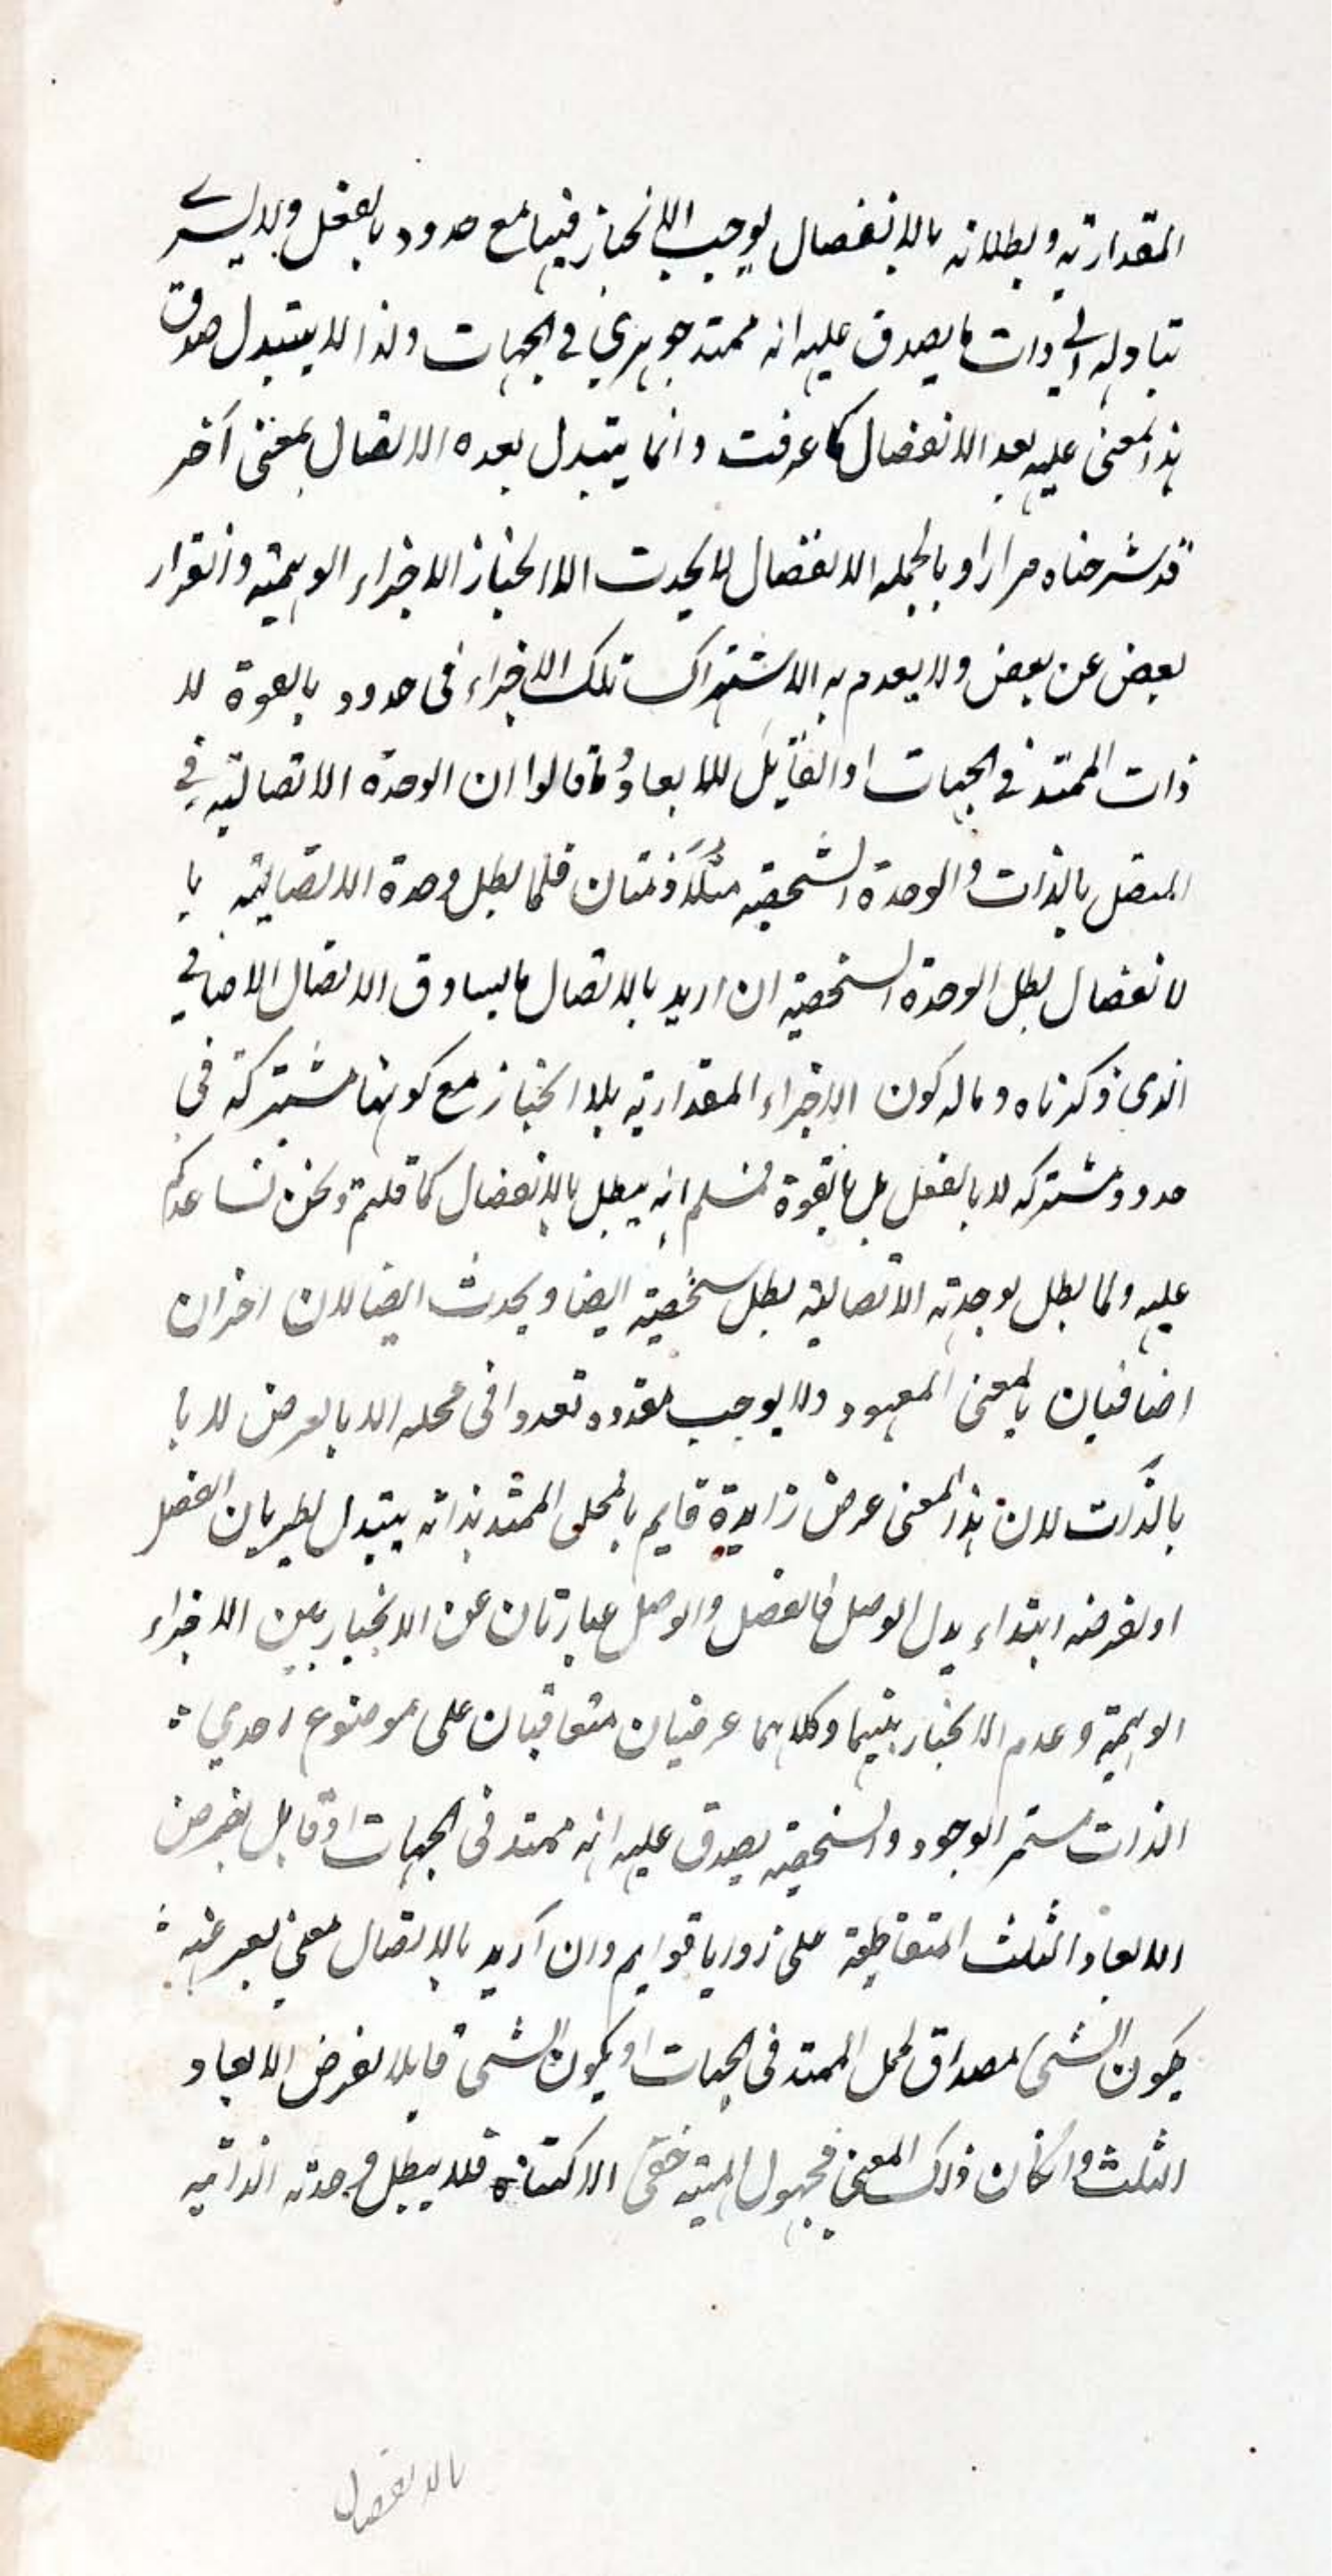 المقدارية وبطلانه بالانفصال يوجب الانحياز فيها مع حدود بالفعل ولا يسرى
تبادله الى ذات ما يصدق عليه انه ممتد جوهري في الجهات ولذا لا يتبدل صدق
هذا المعنى عليه بعد الانفصال كما عرفت وانما يتبدل بعده الاتصال بمعنى آخر
قد شرحناه مرارا وبالجمله الانفصال لا يحدث الا انحياز الاجزاء الوهمية وانفراز
بعض عن بعض ولا يعدم به الا اشتراك تلك الاجزاء في حدود بالقوة لا
ذات الممتد في الجهات او القايل للابعاد وما قالوا ان الوحدة الاتصالية في
المتصل بالذات والوحدة الشخصية متلازمتان فلما بطل وحدة الاتصالية با
لانفصال بطل الوحدة الشخصية ان اريد بالاتصال ما يساوق الاتصال الاضافي
الذي ذكرناه وماله كون الاجزاء المقدارية بلا انحياز مع كونها مشتركة في
حدود مشتركه لا بالفعل بل بالقوة فمسلم انه يبطل بالانفصال كما قلتم ونحن نساعدكم
عليه ولما بطل بوحدته الاتصالية بطل شخصية ايضا ويحدث ايضا لان اخران
اضافيان بالمعنى المعهود ولا يوجب تعدده تعددا في محله الا بالعرض لا با
بالذات لان هذا المعنى عرض زايدة قايم بالمحل الممتد بذاته يتبدل بطريان الفصل
او بفرضه ابتداء بدل الوصل فالفصل والوصل عبارتان عن الانحياز بين الاجزاء
الوهمية وعدم الانحياز بينهما وكلاهما عرضيان متعاقبان على موضوع احدي
الذات مستمر الوجود والشخصية يصدق عليه انه ممتد في الجهات او قابل بفرض
الابعاد الثلث المتقاطعة على زوايا قوايم وان اريد بالاتصال معنى يعبر عنه
بكون الشى مصداق لحمل الممتد في الجهات او بكون الشى قابلا لفرض الابعاد
الثلث وان كان ذلك المعنى مجهول الهيته خفى الاكتناه فلا يبطل وحدته الذاتيه
بالانفصال